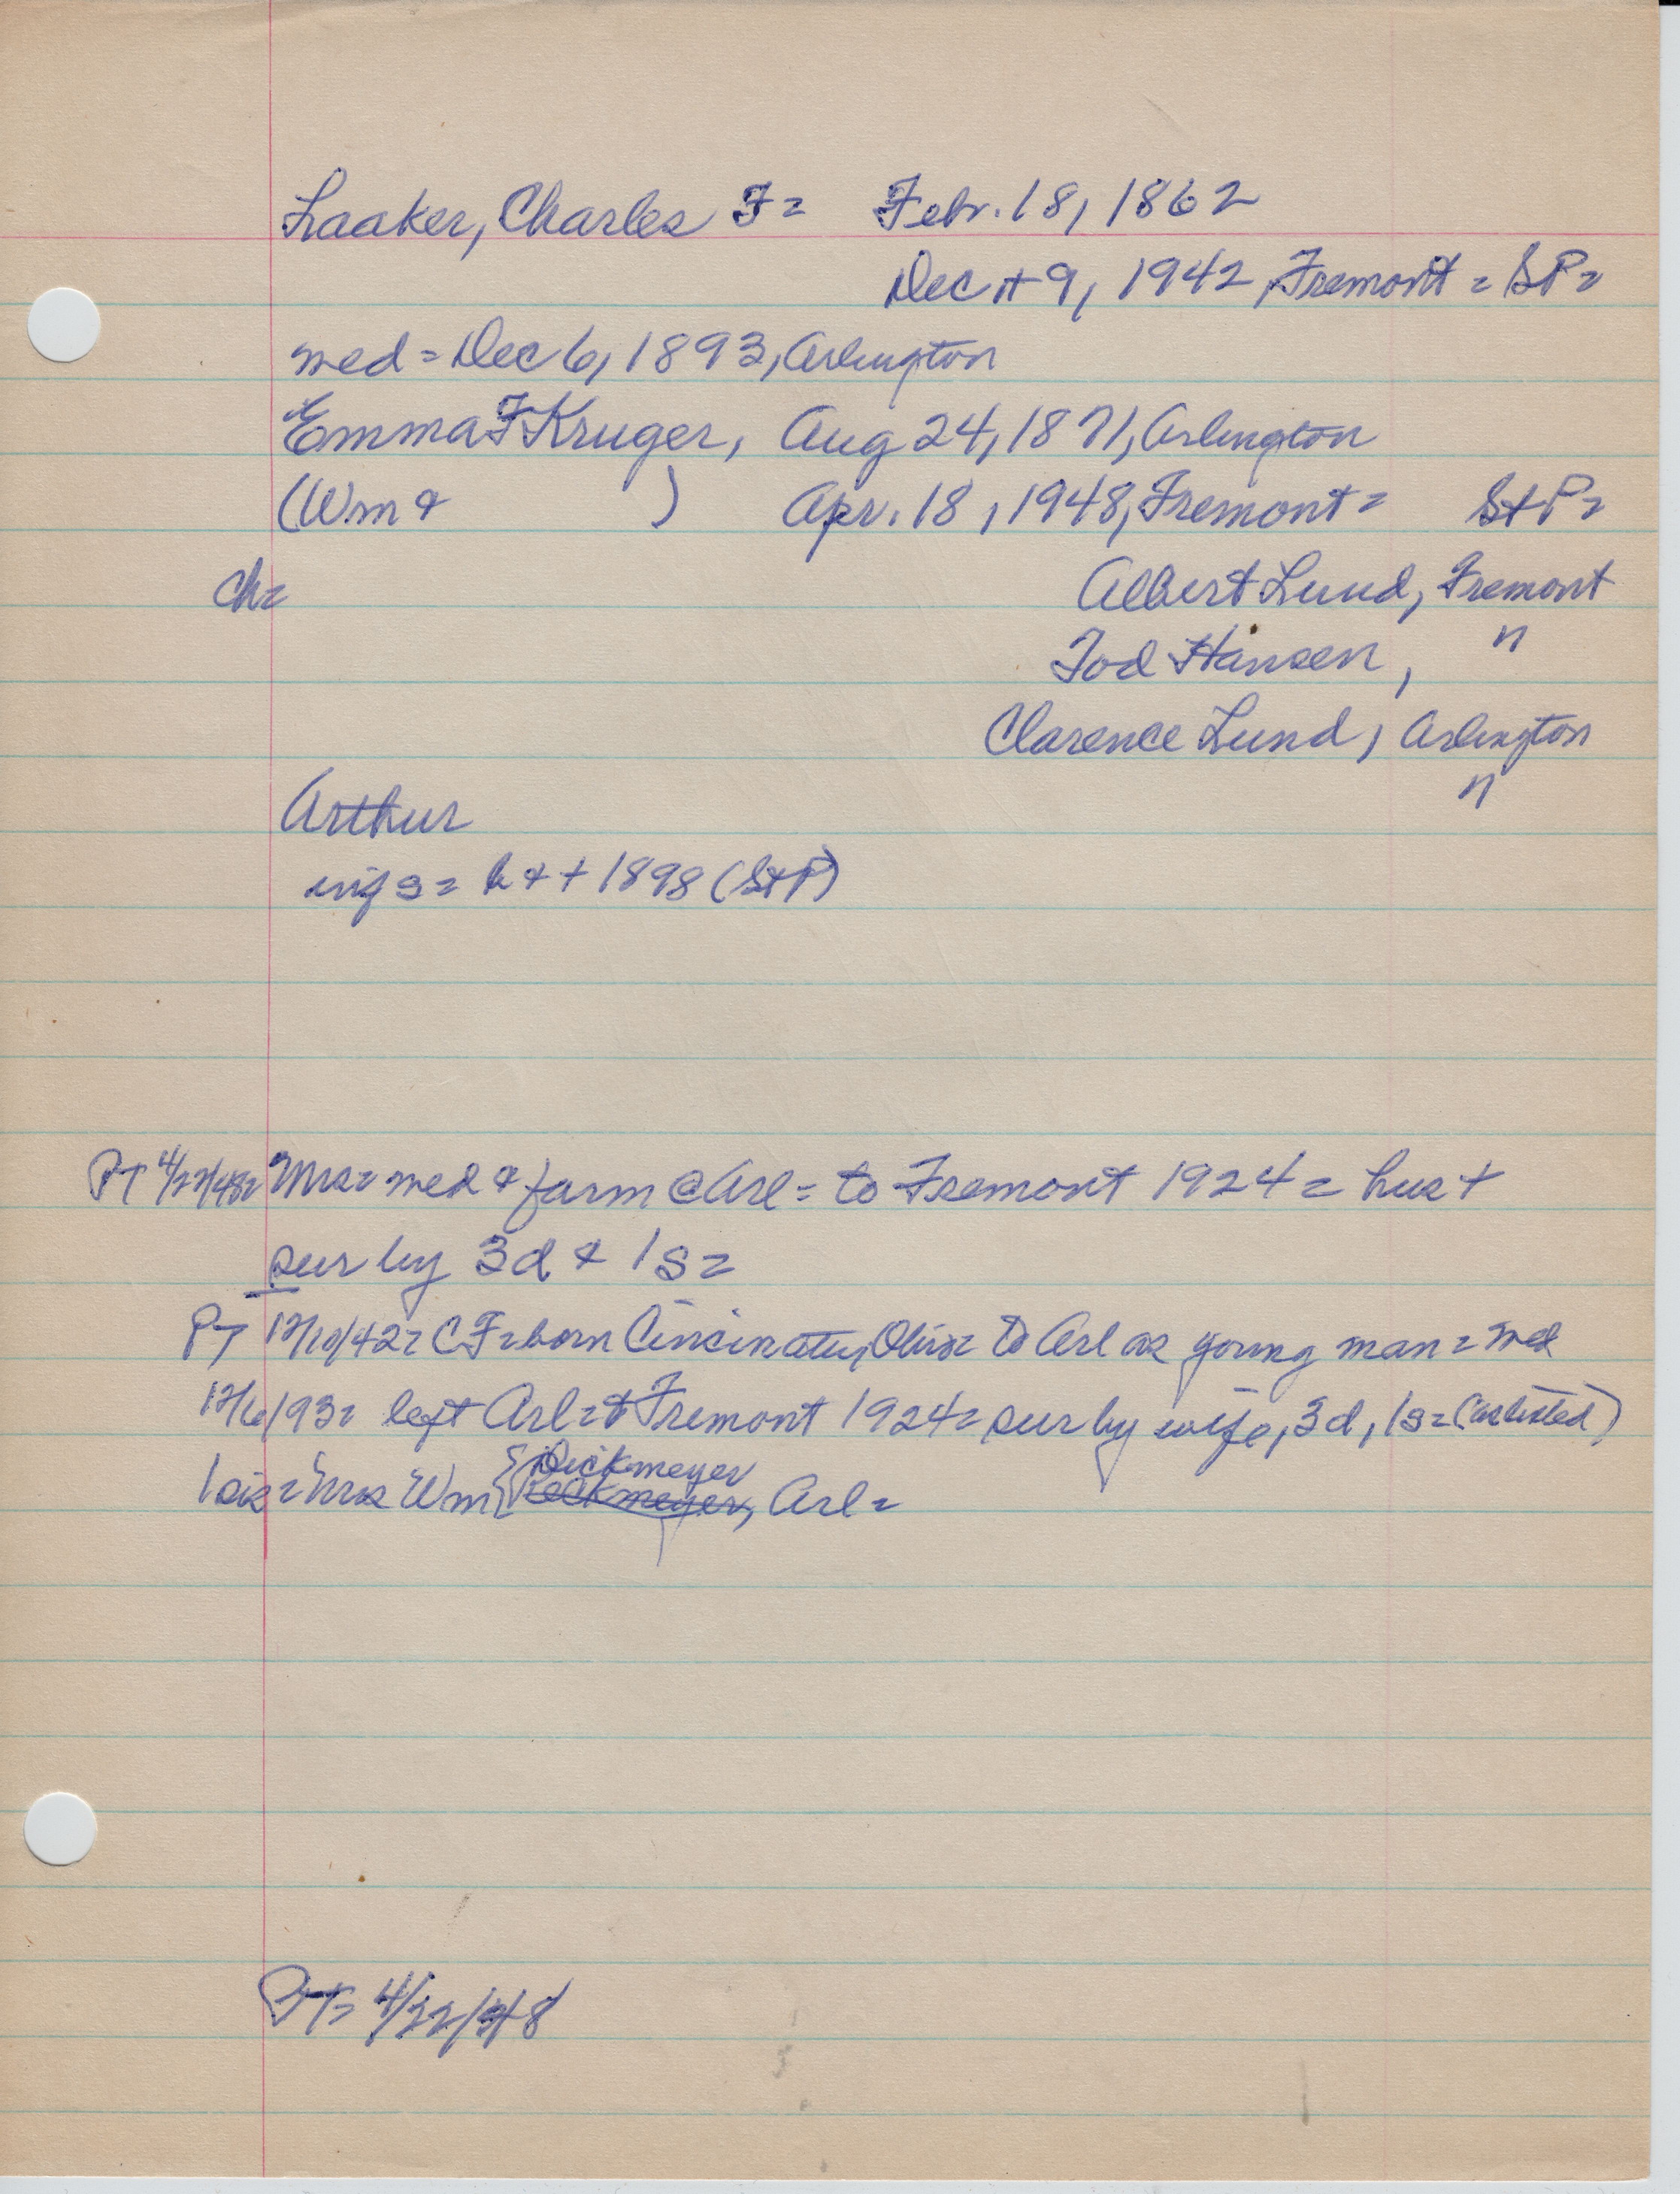 Laaker, Charles F= Febr. 18, 1862
Dec 9, 1942, Fremont = StP=
med = Dec 6, 1893, Arlington
Emma F Kruger, Aug 24, 1871, Arlington
(Wm & ) Apr. 18, 1948, Fremont = StP=
Ch=
Albert Lund, Fremont
Tod Hansen, "
Clarence Lund, Arlington
Arthur "
inf s = b & + 1898 (StP)
PT 4/22/48= Mrs= med & farm @ Arl= to Fremont 1924= hus +
sur by 3d & 1s=
PT 12/10/42= CF= born Cincinatti, Ohio= to Arl as young man= med
12/6/93= left Arl= to Fremont 1924= sur by wife, 3d, 1s= (as listed)
1 sis= Mrs Wm { Dickmeyer
Arl=
PT= 4/22/48